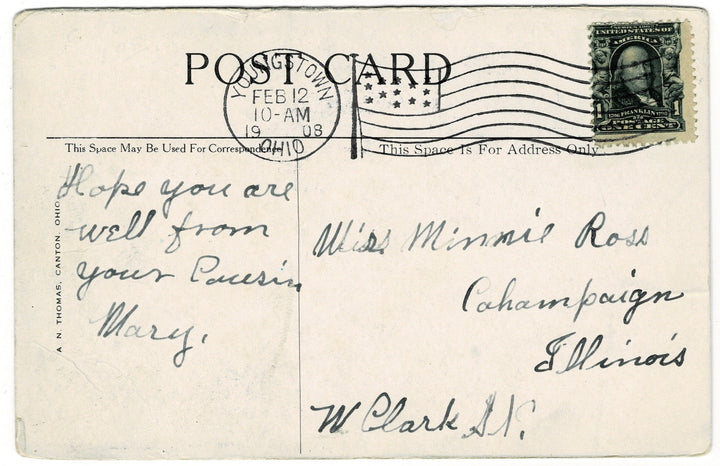 POST CARD
YOUNGSTOWN
FEB 12
10-AM
1908
OHIO
UNITED STATES OF
AMERICA
1706 FRANKLIN 1790
POSTAGE
1 ONE CENT 1
This Space May Be Used For Correspondence
This Space Is For Address Only
A N. THOMAS, CANTON, OHIO
Hope you are
well from
your Cousin
Mary.
Miss Minnie Ross
Cahampaign
Illinois
W Clark St.